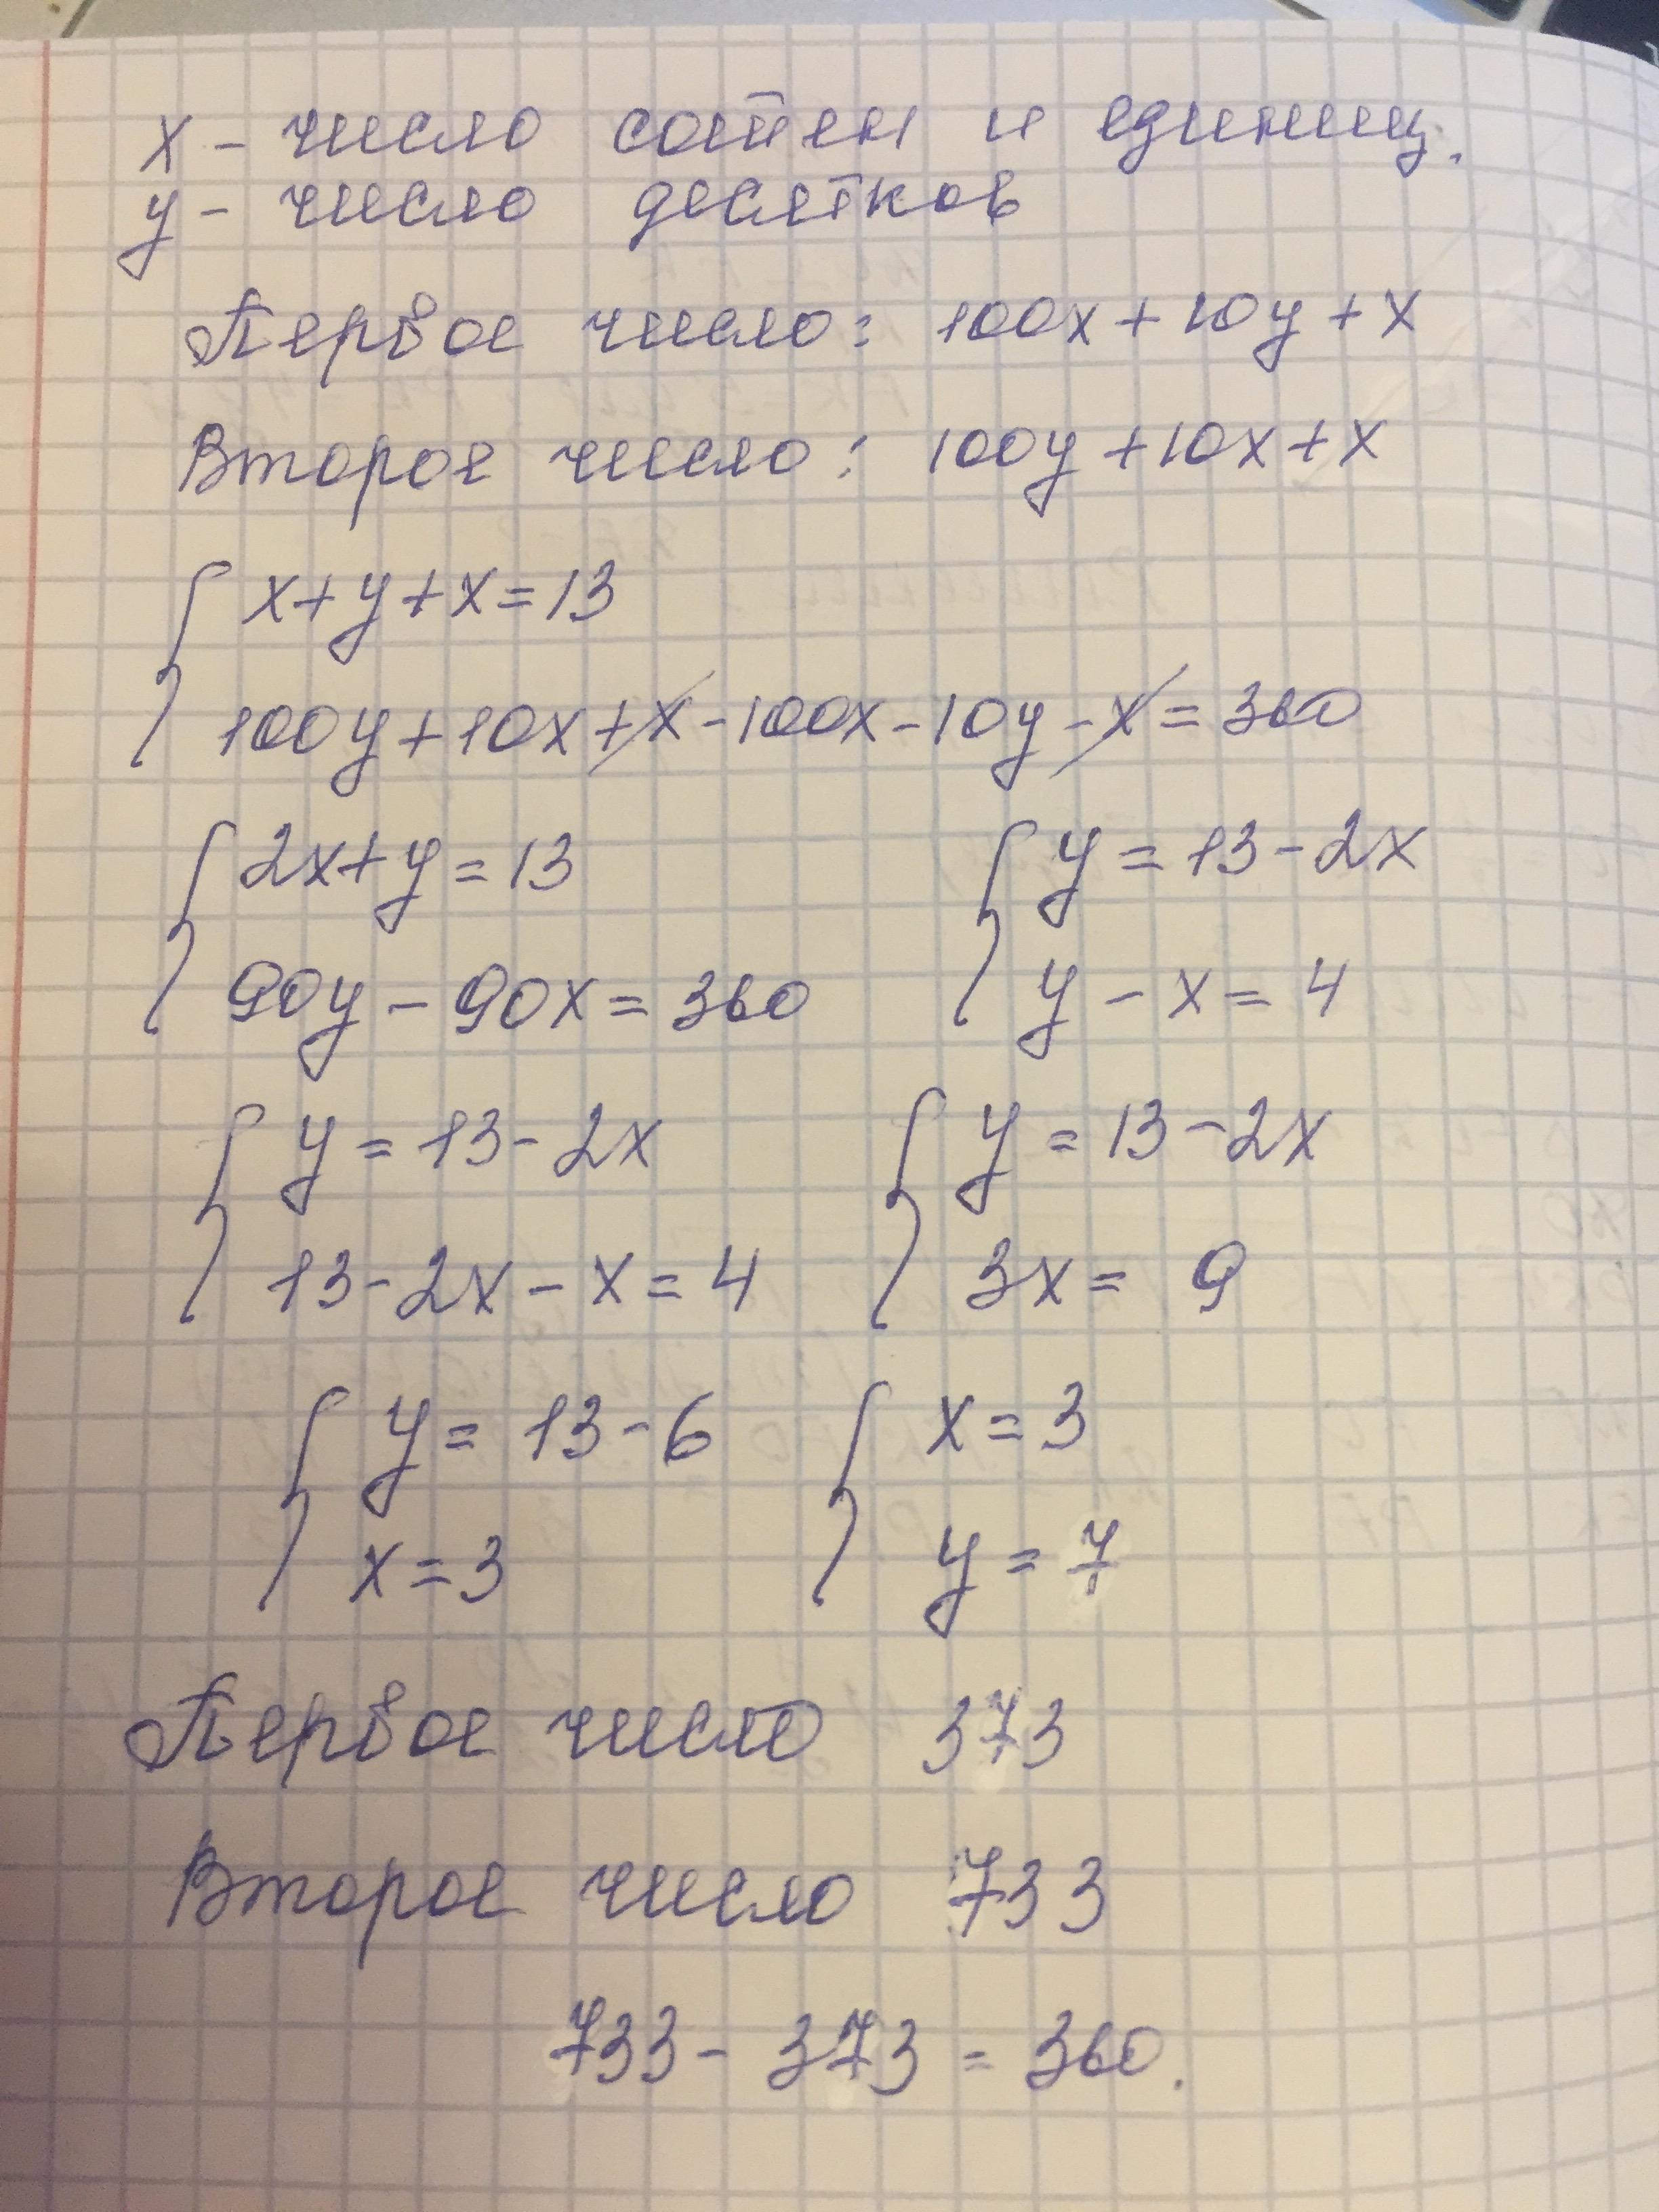 x - число сотен и единиц.
y - число десятков
Первое число: 100x + 10y + x
Второе число: 100y + 10x + x
{ x + y + x = 13
100y + 10x + x - 100x - 10y - x = 360
{ 2x + y = 13 { y = 13 - 2x
90y - 90x = 360 y - x = 4
{ y = 13 - 2x { y = 13 - 2x
13 - 2x - x = 4 3x = 9
{ y = 13 - 6 { x = 3
x = 3 y = 7
Первое число 373
Второе число 733
733 - 373 = 360.